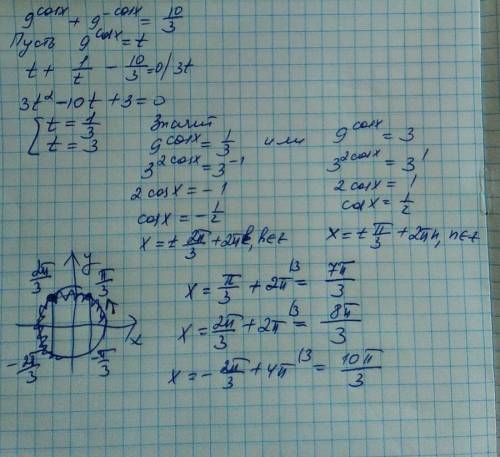 9^cosx + 9^-cosx = 10/3
Пусть 9^cosx = t
t + 1/t - 10/3 = 0 / 3t
3t² - 10t + 3 = 0
[ t = 1/3
t = 3
Значит
9^cosx = 1/3 или 9^cosx = 3
3^2cosx = 3^-1
3^2cosx = 3^1
2cosx = -1
2cosx = 1
cosx = -1/2
cosx = 1/2
x = ± 2π/3 + 2πk, k∈z
x = ± π/3 + 2πn, n∈z
y
2π/3
π/3
x
-2π/3
-π/3
x = π/3 + 2π^(3 = 7π/3
x = 2π/3 + 2π^(3 = 8π/3
x = -2π/3 + 4π^(3 = 10π/3